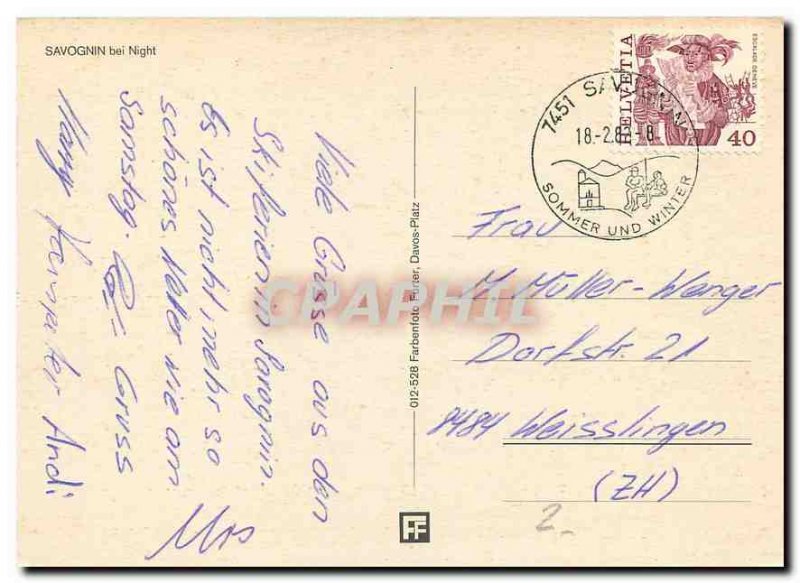 SAVOGNIN bei Night
Viele Grüsse aus den
Skiferien in Savognin.
Es ist nicht mehr so
schönes Wetter wie am
Samstag. Gruss
Andi
Urs
012-528 Farbenfoto Furter, Davos-Platz
FF
HELVETIA
ESCALADE GENÈVE
40
7451 SAVOGNIN
18.-2.8 -8
SOMMER UND WINTER
Frau
M. Müller-Wanger
Dorfstr. 21
8484 Weisslingen
(ZH)
2.-
CARTAPHIL